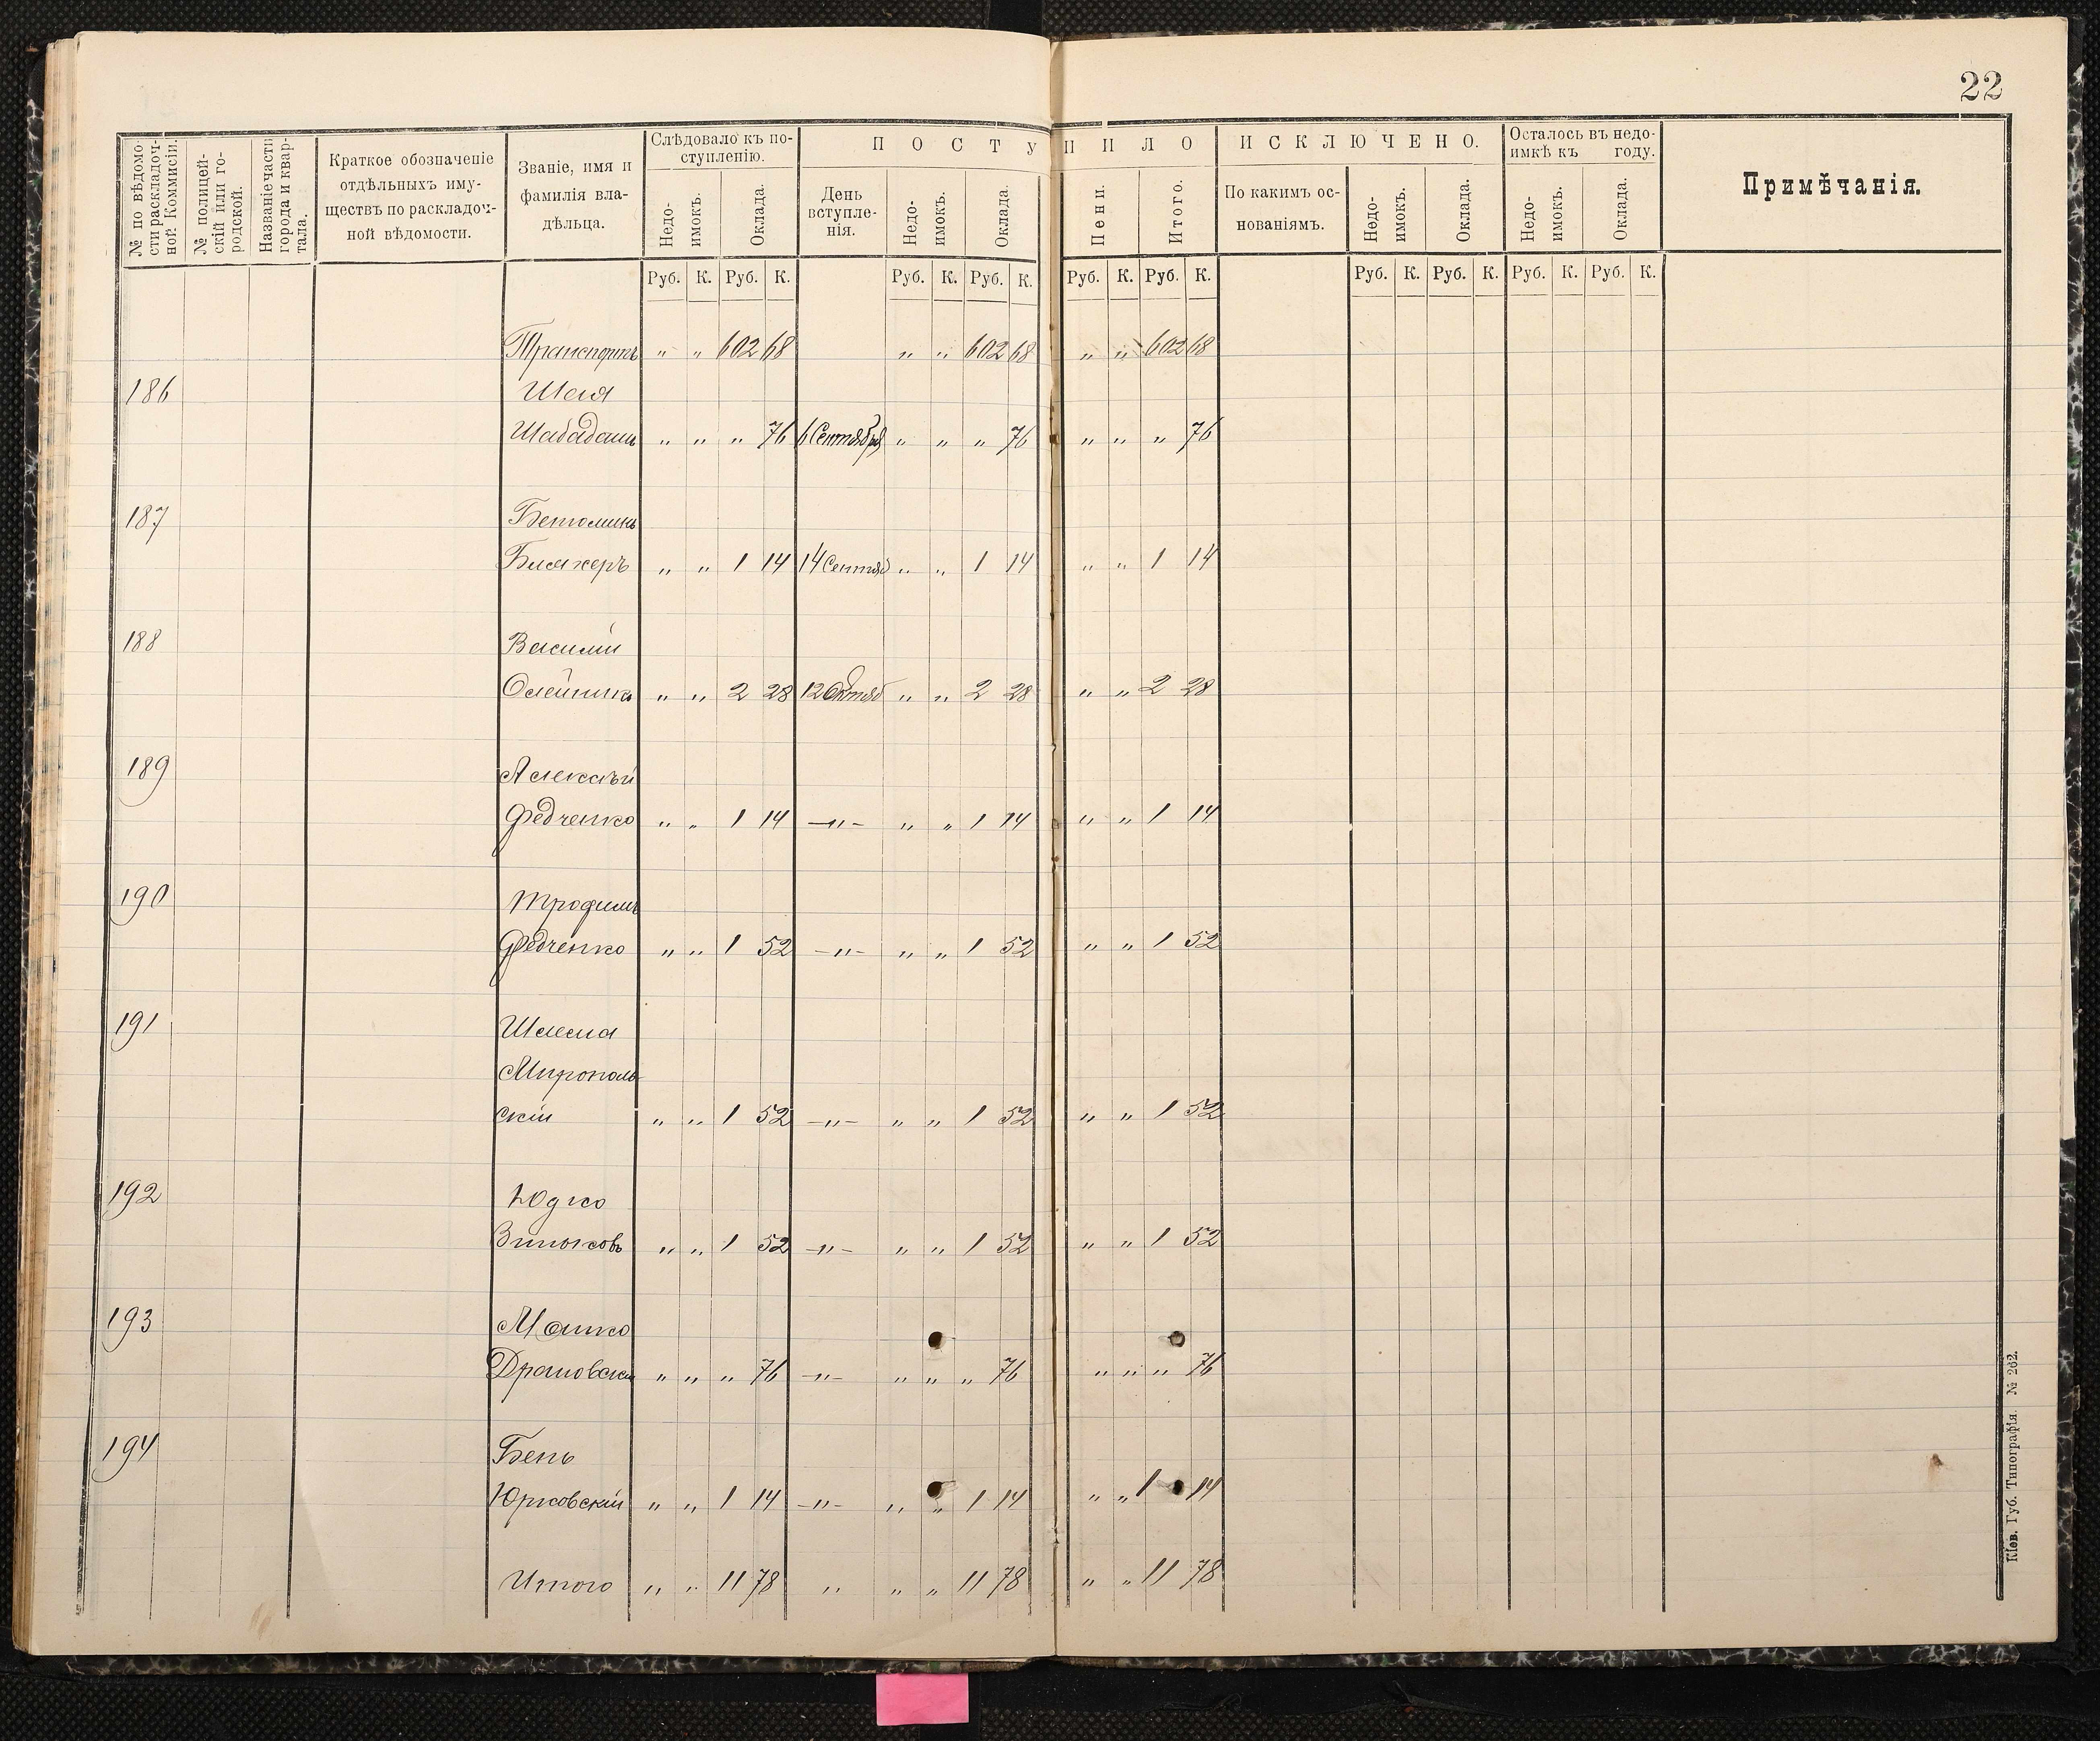 22
№ по вѣдомо-
сти раскладоч-
ной Коммисіи.
№ полицей-
скій или го-
родской.
Названіе части
города и квар-
тала.
Краткое обозначеніе
отдѣльныхъ иму-
ществъ по раскладоч-
ной вѣдомости.
Званіе, имя и
фамилія вла-
дѣльца.
Слѣдовало къ по-
ступленію.
Недо-
имокъ.
Оклада.
ПОСТУПИЛО
День
вступле-
нія.
Недо-
имокъ.
Оклада.
Пени.
Итого.
ИСКЛЮЧЕНО.
По какимъ ос-
нованіямъ.
Недо-
имокъ.
Оклада.
Осталось въ недо-
имкѣ къ году.
Недо-
имокъ.
Оклада.
Примѣчанія.
Руб. К. Руб. К. Руб. К. Руб. К. Руб. К. Руб. К. Руб. К. Руб. К. Руб. К. Руб. К.
Транспортъ „ „ 602 68 „ „ 602 68 „ „ 602 68
186
Шабадашъ „ „ „ 76 6 Сентября „ „ „ 76 „ „ „ 76
187
„ „ 1 14 14 Сентяб „ „ 1 14 „ „ 1 14
188 Василій
Олейникъ „ „ 2 28 12 Октяб „ „ 2 28 „ „ 2 28
189 Алексѣй
Федченко „ „ 1 14 —„— „ „ 1 14 „ „ 1 14
190 Трофимъ
Федченко „ „ 1 52 —„— „ „ 1 52 „ „ 1 52
191 Шлема
Мирополь-
скій „ „ 1 52 —„— „ „ 1 52 „ „ 1 52
192 Юдко
Зиньковъ „ „ 1 52 —„— „ „ 1 52 „ „ 1 52
193 Мошко
„ „ „ 76 —„— „ „ „ 76 „ „ „ 76
194 Бень
Юрковскій „ „ 1 14 —„— „ „ 1 14 „ „ 1 14
Итого „ „ 11 78 „ „ „ 11 78 „ „ 11 78
Кіев. Губ. Типографія. № 262.